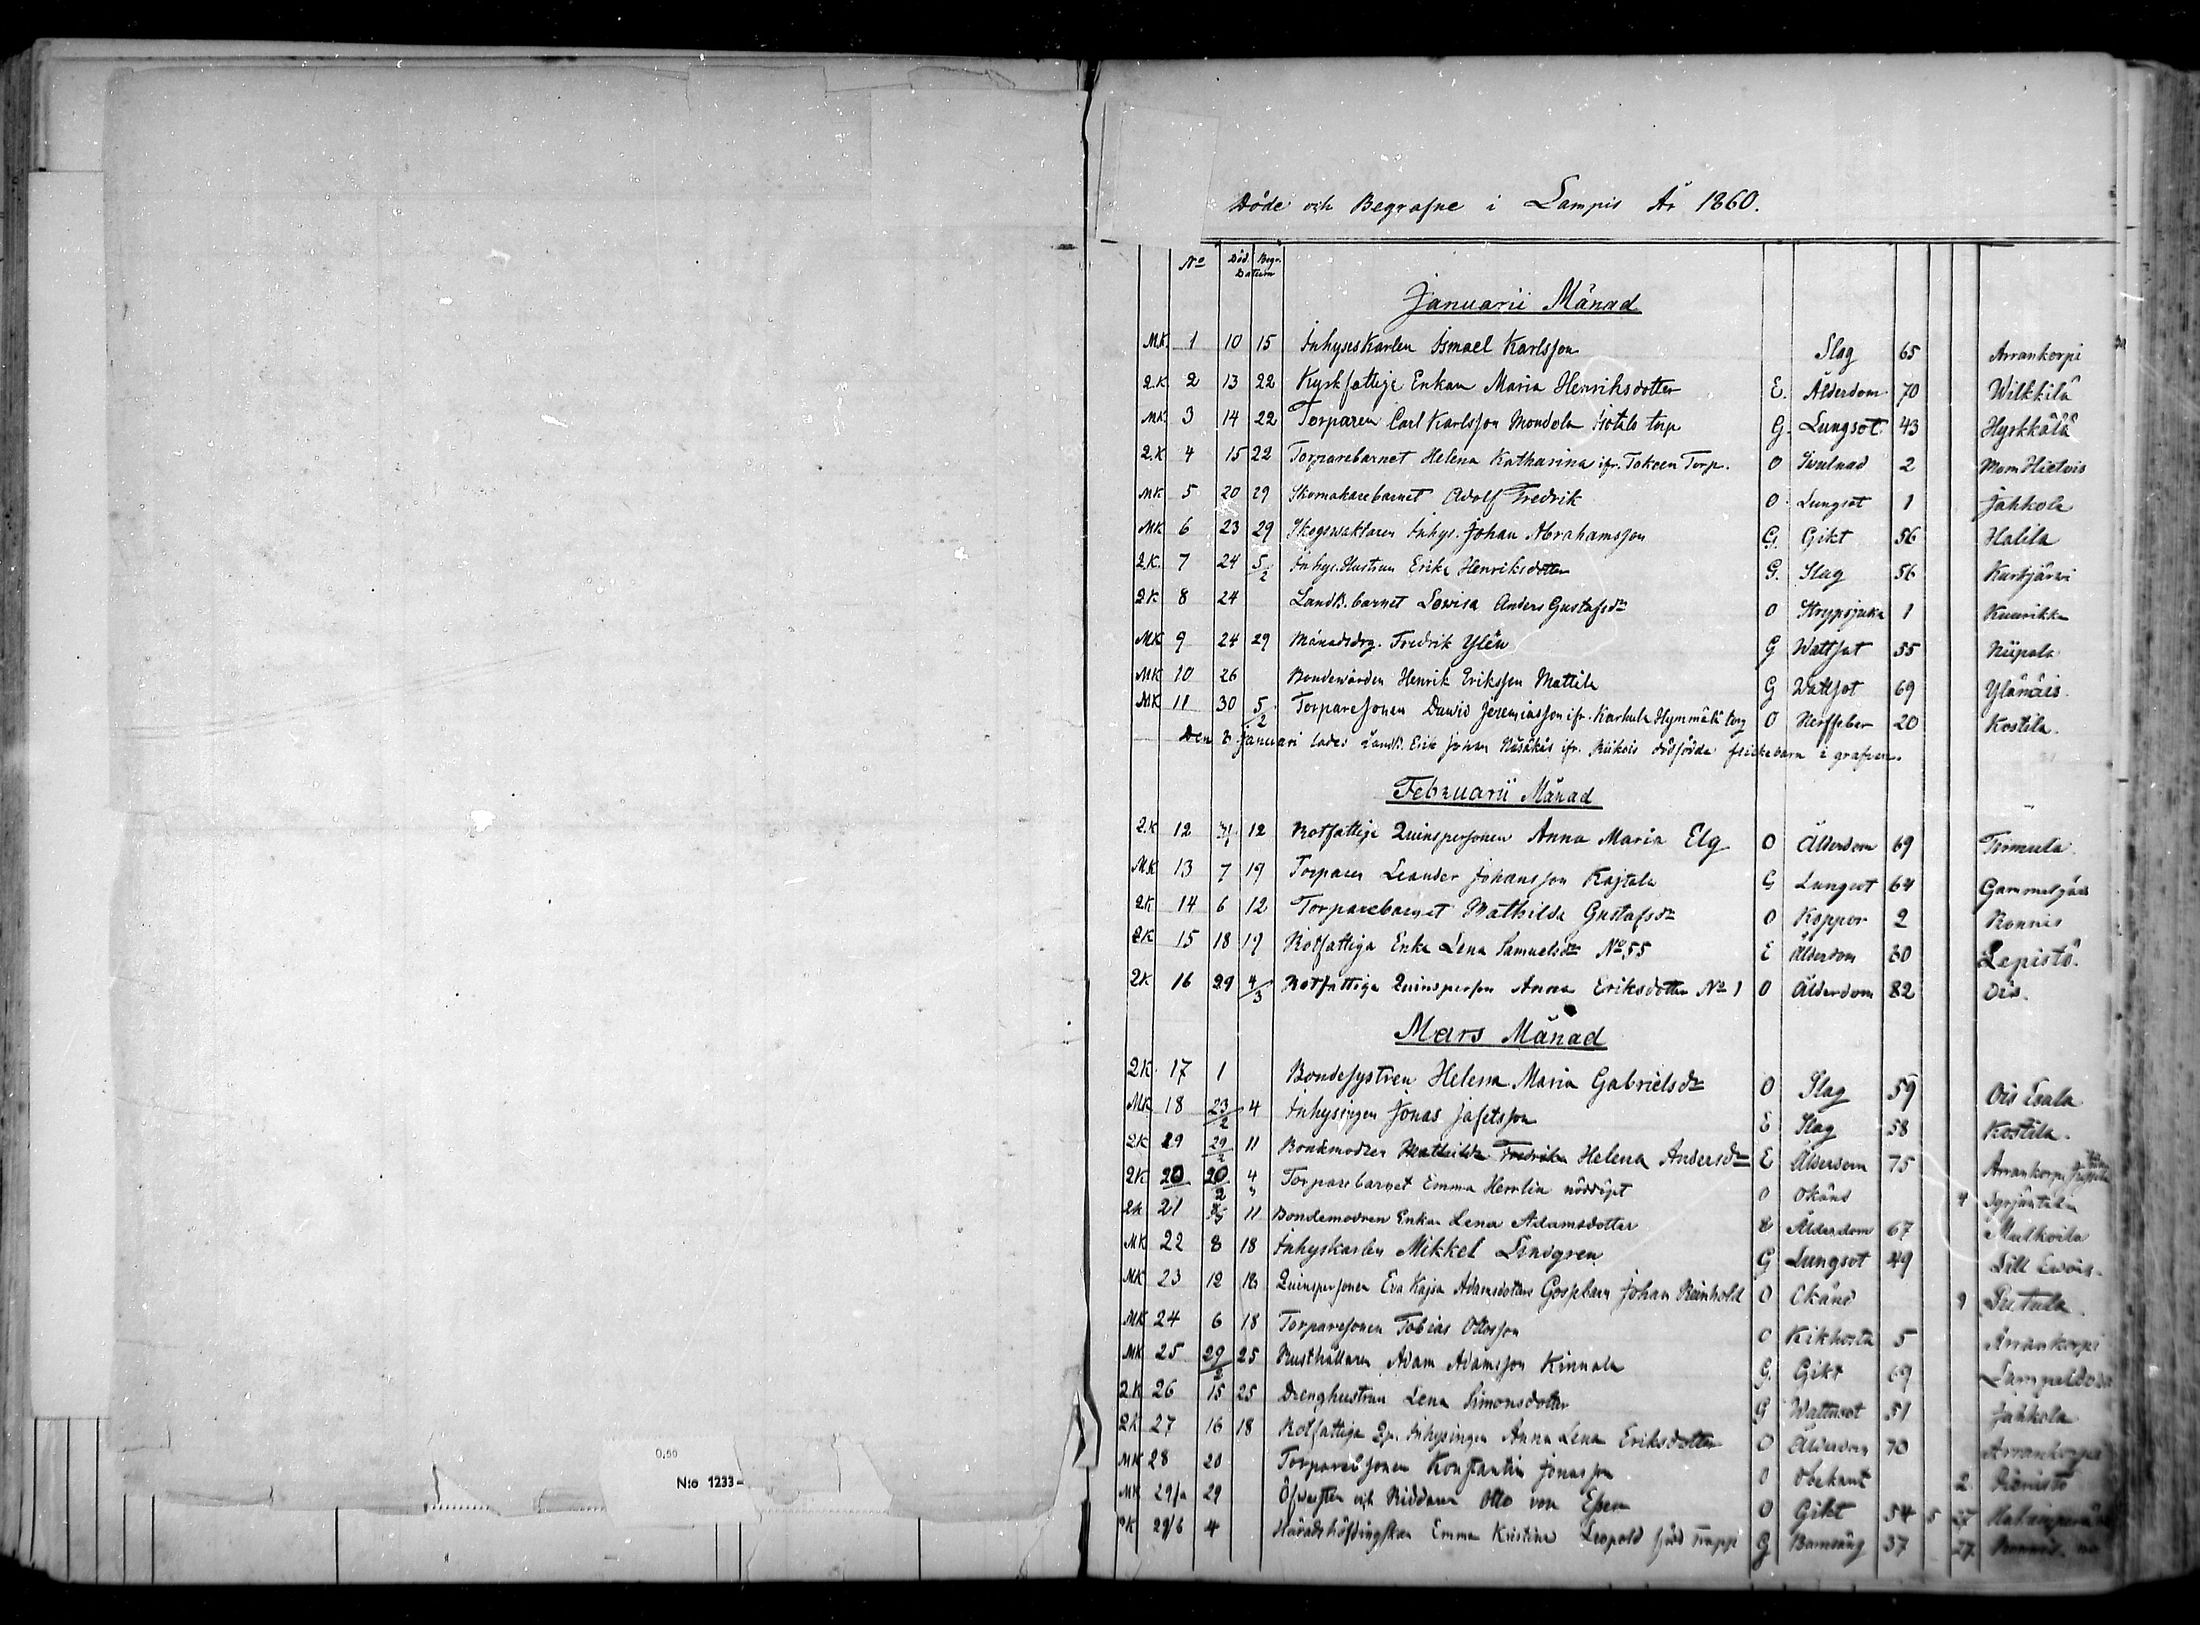 Döde och Begrafne i Lampis År 1860.
No Död. Begr.
Datum
Januarii Månad
MK. 1 10 15 Inhyseskarlen Ismael Karlsson Slag 65 Arrankorpi
2.K 2 13 22 Kyrkfattige Enkan Maria Henriksdotter E. Ålderdom 70 Wilkkilä
MK. 3 14 22 Torparen Carl Karlsson Mondola torp G. Lungsot 43 Hyrkkälä
2.K 4 15 22 Torparebarnet Helena Katharina ifr. Torp. O 2
MK 5 20 29 Skomakarebarnet Adolf Fredrik O Lungsot 1 Jahkola
MK 6 23 29 Skogswaktaren Inhys. Johan Abrahamsson G. Gikt 56 Halila
2K. 7 24 5/2 Inhys.Hustrun Erika Henriksdotter G. Slag 56 Kurtjärvi
2K 8 24 Landb. barnet Lovisa Anders Gustafsdr O Strypsjuka 1 Kuurikka
MK 9 24 29 Månadsdrg. Fredrik Ylén G Wattsot 55
MK 10 26 Bondewärden Henrik Eriksson Mattila G Wattsot 69 Ylänäis.
MK 11 30 5/2 Torparesonen David Jeremiasson ifr. Karhula Hymmälä torp O Nerffeber 20 Kostila.
Den 8 Januari lades Landb. Erik Johan ifr. dödfödda flickebarn i grafven.
Februarii Månad
2K 12 12 Rotfattige Quinspersonen Anna Maria Elg O Ålderdom 69 Tirmula
MK 13 7 19 Torparen Leander Johansson Kajtala G Lungsot 64 Gammelgård
2K 14 6 12 Torparebarnet Mathilda Gustafsdr O Koppor 2 Ronnis
2K 15 18 19 Rotfattiga Enka Lena Samuelsdr No 55 E Ålderdom 80 Lepistö.
2K 16 29 4/3 Rotfattiga Quinsperson Anna Eriksdotter No 1 O Ålderdom 82 Ois.
Mars Månad
2K. 17 1 Bondesystren Helena Maria Gabrielsdr O Slag 59 Ois Esala
MK 18 23/2 4 Inhysingen Jonas Jafetsson E Slag 58 Kostila.
2K 19 29/2 11 Bondmodren Mathilda Fredrika Helena Andersdr E Ålderdom 75 Arrankorpi
2K 20 20/2 4 Torparebarnet Emma Herrlin nöddöpt O Okänd 4 Syrjäntaka
2K 21 11 Bondemodren Enkan Lena Adamsdotter E Ålderdom 67 Mulkoila
MK 22 8 18 Inhyskarlen Mikkel Lindgren G Lungsot 49 Lill Ewois.
MK 23 12 18 Quinspersonen Eva Kajsa Adamsdotters Gossebarn Johan Reinhold O Okänd 9 Pitula.
MK 24 6 18 Torparesonen Tobias Ottosson O Kikhosta 5 Arrankorpi
MK 25 29/2 25 Rusthållaren Adam Adamsson Kinnala G. Gikt 69
2K 26 15 25 Drenghustrun Lena Simonsdotter G Wattusot 51 Jahkola
2K 27 16 18 Rotfattige Qp. Inhysingen Anna Lena Eriksdotter O Ålderdom 70 Arrankorpi
MK 28 20 Torparesonen Konstantin Jonasson O Obekant 2
MK 29/a 29 Öfwersten och Riddaren Otto von Essen O Gikt 54 5 27
2K 29/b 4 Häradshöfdingskan Emma Kristina Leopold född Trapp G Barnsäng 37 27
0,50
N:o 1233-